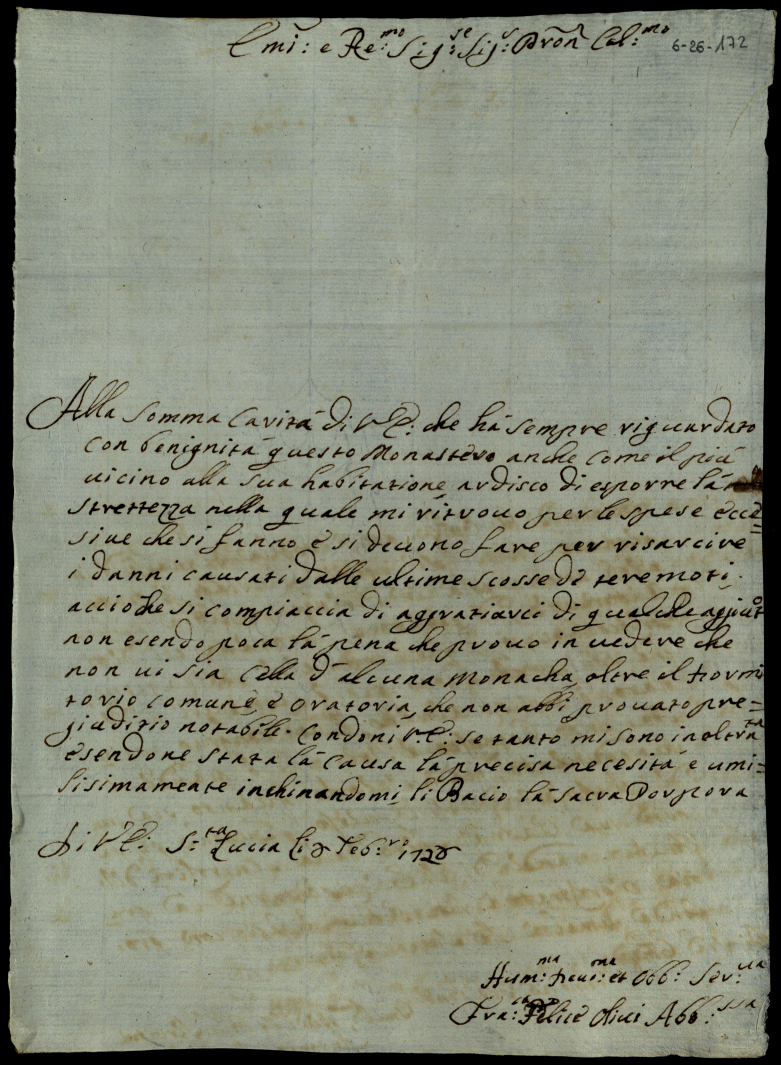 Emi: e Re:mo Sig:re Sig:r Pron Col:mo
6-26-172
Alla somma Carità di V E: che hà sempre riguardato
con benignità questo Monastero anche come il più
uicino alla sua habitatione ardisco di esporre là
strettezza nella quale mi ritrouo per le spese ecce=
siue che si fanno è si deuono fare per risarcire
i danni causati dalle ultime scosse dè teremoti,
acciòche si compiaccia di aggratiarci di qualche aggiuto
non esendo poca là pena che prouo in uedere che
non ui sia Cella d'alcuna Monacha, oltre il dormi
torio comune, è oratoria, che non abbi prouato pre=
giuditio notabile. Condoni V.E: se tanto mi sono inoltrata
esendone stata là Causa là precisa necesità e umi=
lisimamente inchinandomi li Bacio là sacra Porpora
Di V E: S:ta Lucia li 8 Feb:r: 1728
Hum:ma Deu:ma et Obb: Ser:ua
Fra:ca Felice Oliui Abb:ssa